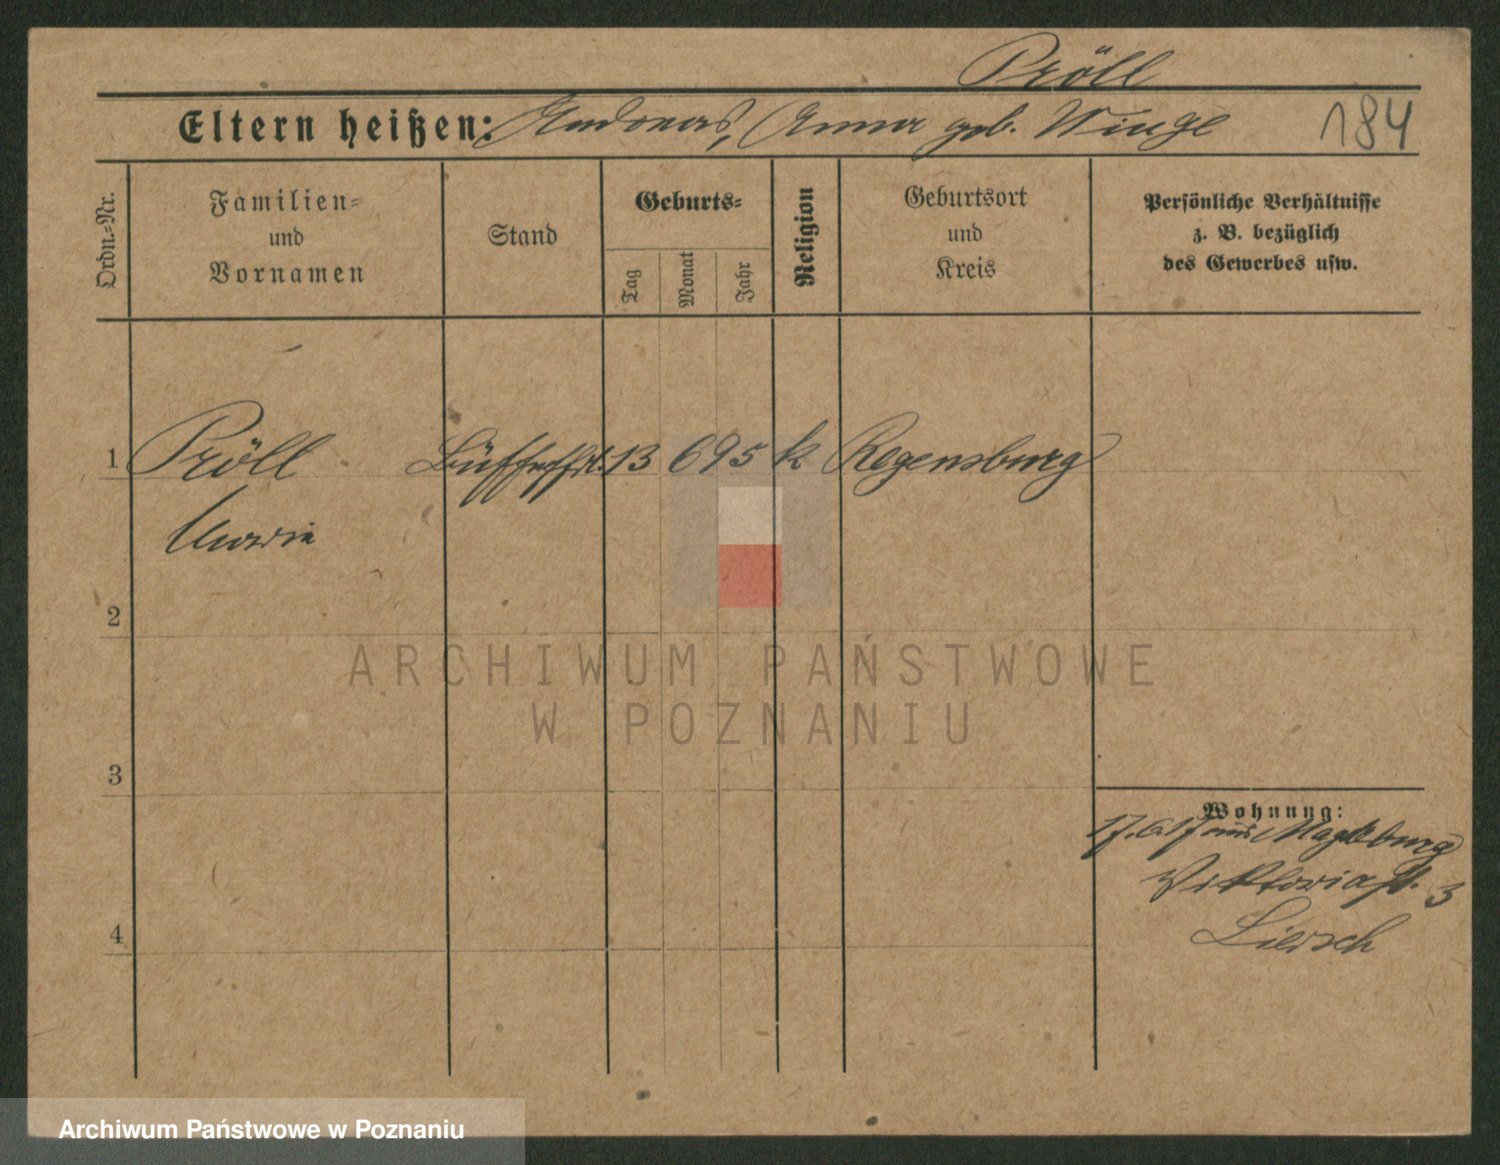 Pröll
Eltern heißen: Andreas, Anna geb. Winge
184
Ordn.-Nr.
Familien-
und
Vornamen
Stand
Geburts-
Tag
Monat
Jahr
Religion
Geburtsort
und
Kreis
Persönliche Verhältnisse
z. B. bezüglich
des Gewerbes usw.
1 Pröll Büffettfrl. 13 6 95 k Regensburg
Maria
2
3
4
Wohnung:
17.6.17 aus Magdeburg
Viktoriastr. 3
Liersch
ARCHIWUM PAŃSTWOWE
W POZNANIU
Archiwum Państwowe w Poznaniu